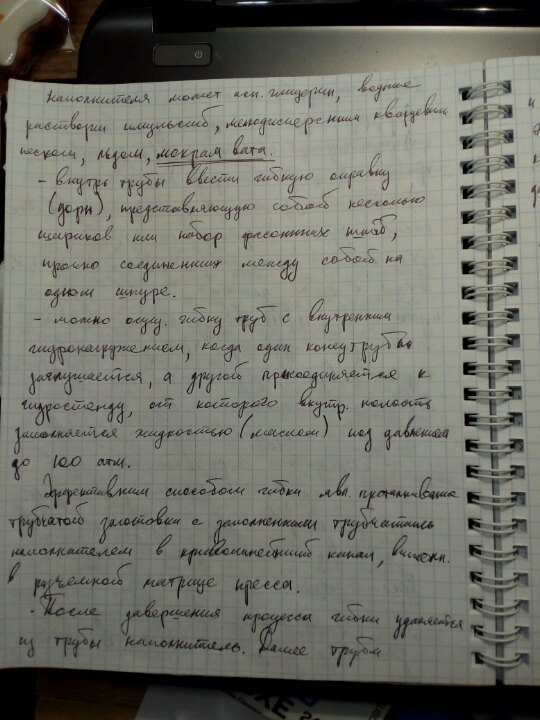 наполнителя может исп. глицерин, водные
растворы эмульсий, мелкодисперсным кварцевым
песком, льдом, мокрая вата.
- внутрь трубы ввести гибкую оправку
(дорн), представляющую собой несколько
шариков или набор фасонных шайб,
прочно соединенных между собой на
одном шнуре.
- можно осущ. гибку труб с внутренним
гидронагружением, когда один конец трубы
заглушается, а другой присоединяется к
гидростенду, от которого внутр. полость
заполняется жидкостью (маслом) под давлением
до 100 атм.
Эффективным способом гибки явл. проталкивание
трубчатой заготовки с заполненным
наполнителем в криволинейный канал, выполн.
в разъемной матрице пресса.
· После завершения процесса гибки удаляется
из трубы наполнитель. Далее трубы